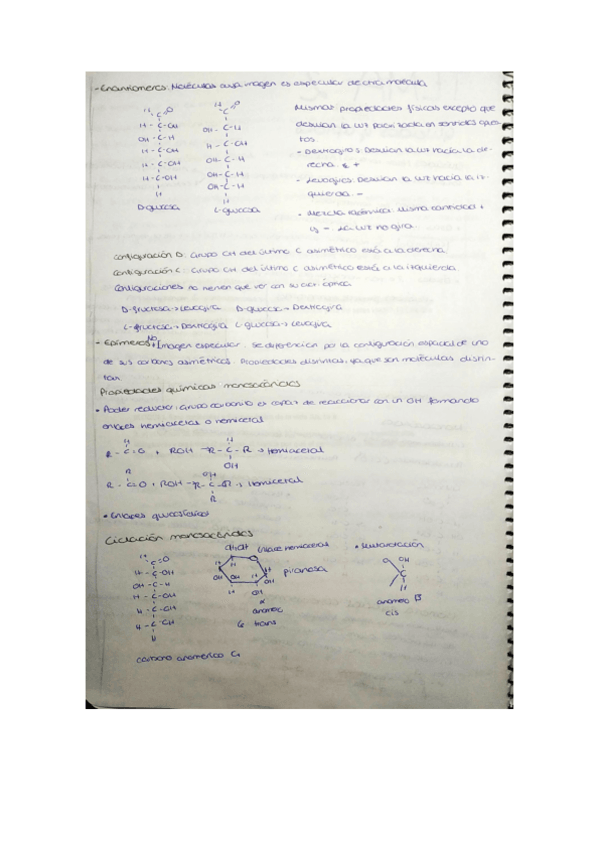 - Enantiómeros: Moléculas cuya imagen es especular de otra molécula
Mismas propiedades físicas excepto que
desvían la luz polarizada en sentidos opues-
tos.
- Dextrógiros: Desvían la luz hacia la de-
recha. +
- Levógiros: Desvían la luz hacia la iz-
quierda. -
- Mezcla racémica: Misma cantidad +
y - La luz no gira.
H O
C
H - C - OH
OH - C - H
H - C - OH
H - C - OH
H - C - OH
H
D-glucosa
H O
C
OH - C - H
H - C - OH
OH - C - H
OH - C - H
OH - C - H
H
L-glucosa
Configuración D: Grupo OH del último C asimétrico está a la derecha.
Configuración L: Grupo OH del último C asimétrico está a la izquierda
Configuraciones no tienen que ver con su act. óptica.
D-fructosa → Levógira D-glucosa → Dextrógira
L-fructosa → Dextrógira L-glucosa → Levógira
- Epímeros: No imagen especular. Se diferencian por la configuración espacial de uno
de sus carbonos asimétricos. Propiedades distintas, ya que son moléculas distin-
tas.
Propiedades químicas monosacáridos
• Poder reductor: Grupo carbonilo es capaz de reaccionar con un OH formando
enlaces hemiacetal o hemicetal
H
R - C = O + ROH → R - C - R → Hemiacetal
OH
R OH
R - C = O + ROH → R - C - R → Hemicetal
R
• Enlaces glucosídicos
Ciclación monosacáridos
H C = O
H - C - OH
OH - C - H
H - C - OH
H - C - OH
H - C - OH
H
CH₂OH Enlace hemiacetal
piranosa
α
anómero
trans
• Mutarrotación
O OH
C
H
anómero β
cis
carbono anomérico C₁